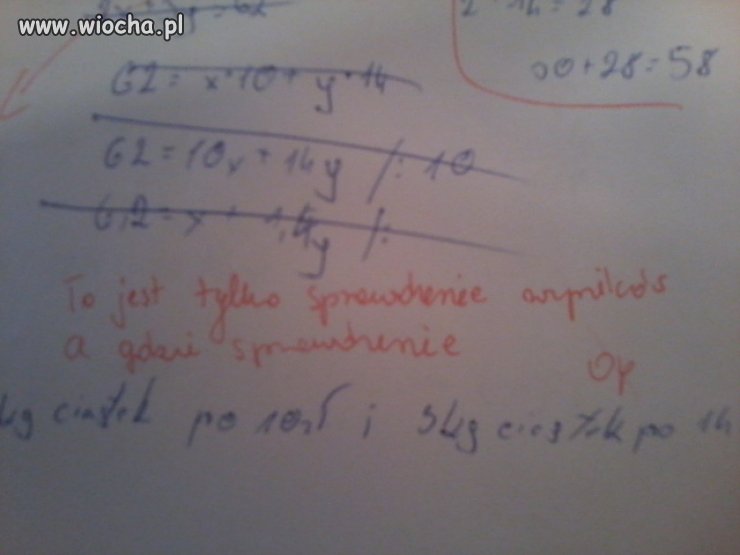 www.wiocha.pl
2 · 14 = 28
30 + 28 = 58
62 = x · 10 + y · 14
62 = 10x + 14y /: 10
6,2 = x + 1,4y /:
To jest tylko sprawdzenie wyników
a gdzie sprawdzenie
0p
kg ciastek po 10zł i 3kg ciastek po 14